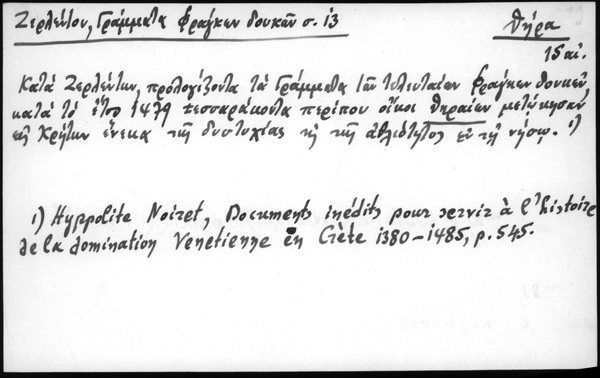 Ζερλέντου, Γράμματα Φράγκων δουκῶν σ. ιз
Θήρα
15 αἰ.
Κατά Ζερλέντην, προλογίζοντα τά Γράμματα τῶν τελευταίων Φράγκων δουκῶν,
κατά τό ἔτος 1479 τεσσαράκοντα περίπου οἶκοι Θηραίων μετῴκησαν
εἰς Κρήτην ἕνεκα τῆς δυστυχίας ἢ τῆς ἀθλιότητος ἐν τῇ νήσῳ. 1)
1) Hyppolite Noiret, Documents inédits pour servir à l'histoire
de la domination Venetienne en Crète 1380-1485, p. 545.